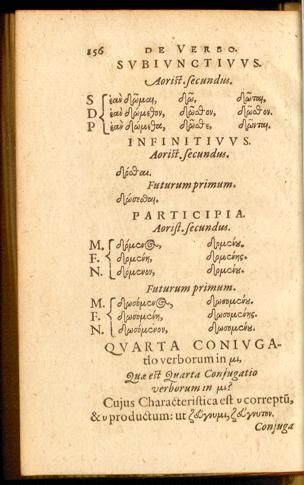 156 DE VERBO.
SVBIVNCTIVVS.
Aorist. secundus.
S ἐὰν δῶμαι, δῶ, δῶται,
D ἐὰν δώμεθον, δῶσθον, δῶσθον.
P ἐὰν δώμεθα, δῶσθε, δῶνται.
INFINITIVVS.
Aorist. secundus.
δόσθαι.
Futurum primum.
δώσεσθαι.
PARTICIPIA.
Aorist. secundus.
M. δόμενος, δομένου.
F. δομένη, δομένης.
N. δόμενον, δομένου.
Futurum primum.
M. δωσόμενος, δωσομένου.
F. δωσομένη, δωσομένης.
N. δωσόμενον, δωσομένου.
QVARTA CONIVGA-
tio verborum in μι,
Quæ est Quarta Conjugatio
verborum in μι?
Cujus Characteristica est υ correptū,
& υ productum: ut ζεύγνυμι, ζεύγνυτον.
Conjuga